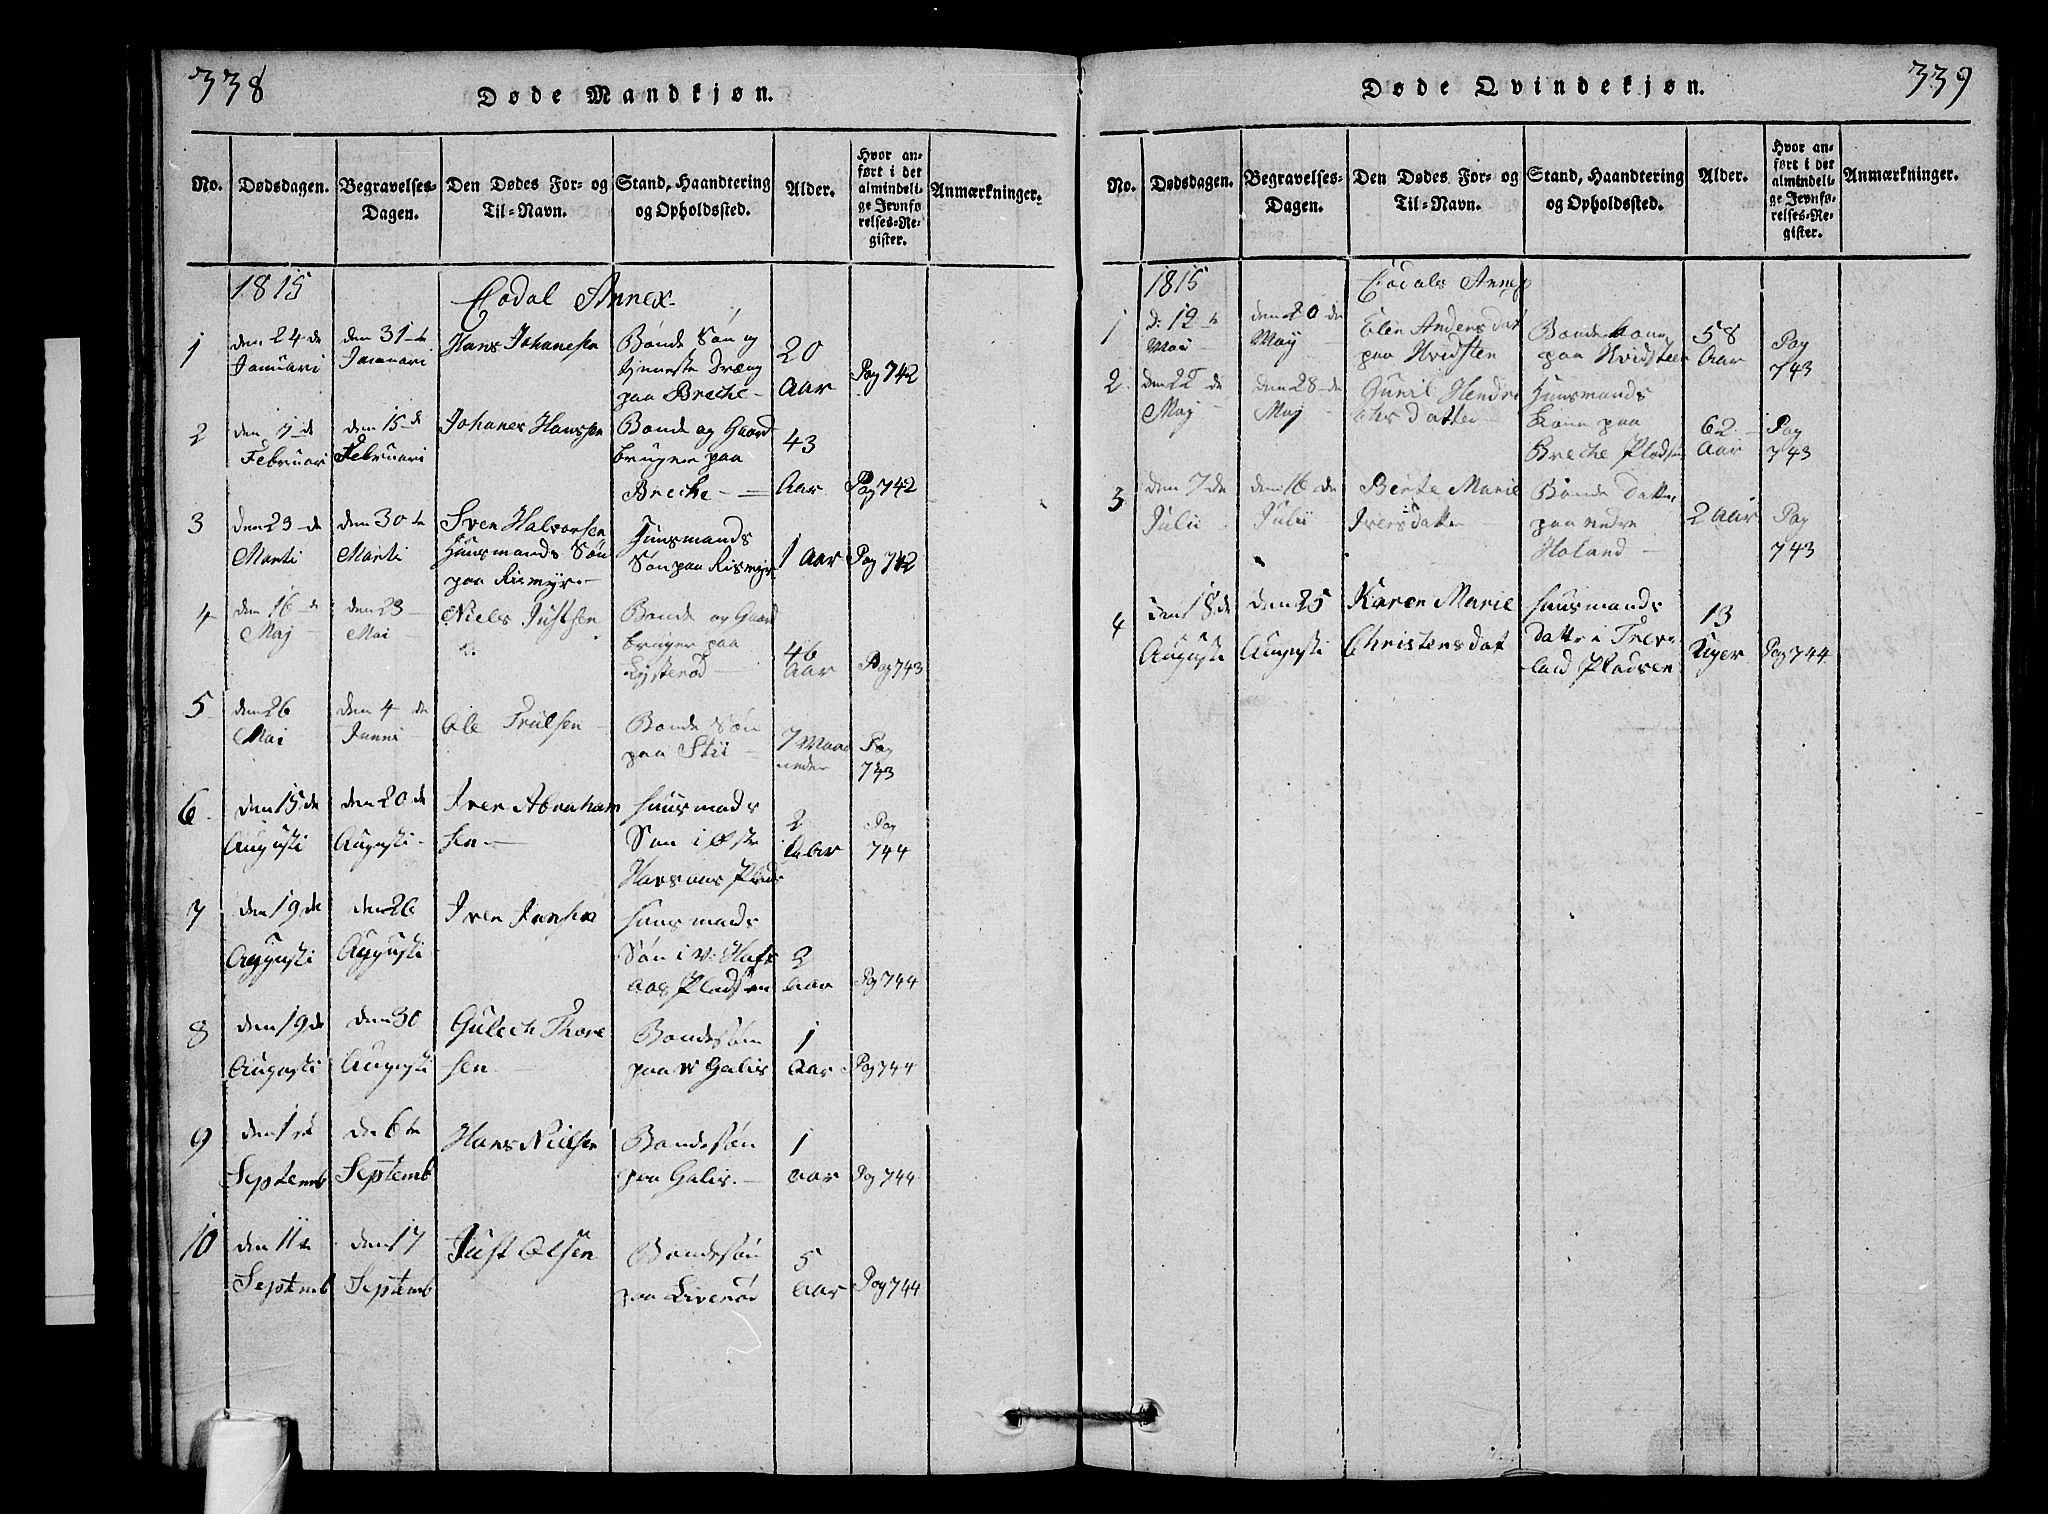 338
Døde Mandkjøn.
No. Dødsdagen. Begravelses-Dagen. Den Dødes For- og Til-Navn. Stand, Haandtering og Opholdssted. Alder. Hvor anført i det almindelige Jevnførelses-Register. Anmærkninger.
1815
Codal Annex
1 den 24de Januari den 31te Januari Hans Johanesen Bonde Søn og tjeneste Dreng paa Breche 20 Aar Pag 742
2 Februari den 15de Februari Johanes Hanssen Bonde og Gaard bruger paa Breche 43 Aar Pag 742
3 den 23de Marti den 30te Marti Sven Halvorsen Huusmands Søn paa Rismyr Huusmands Søn paa Rismyr 1 Aar Pag 742
4 den 16de Maj den 23 Mai Niels Justsen Bonde og Gaard bruger paa Lysterød 46 Aar Pag 743
5 den 26 Mai den 4de Junni Ole Trulsen Bonde Søn paa 7 Maaneder Pag 743
6 den 15de Augusti den 20de Augusti Iver Abrahamsen Huusmads Søn i Øste 2 Aar Pag 744
7 den 19de Augusti den 26 Augusti Iver Huusmads Søn i v: Hafs aas Pladsen Aar Pag 744
8 den 19de Augusti den 30 Augusti Gulech Thoresen Bondesøn paa v Galis 1 Aar Pag 744
9 den 1ste Septemb den 6te Septemb Hans Nielsen Bondesøn paa Galis 1 aar Pag 744
10 den 11te Septemb den 17 Septemb Just Olsen Bondesøn paa Liverød 5 aar Pag 744
339
Døde Qvindekjøn.
No. Dødsdagen. Begravelses-Dagen. Den Dødes For- og Til-Navn. Stand, Haandtering og Opholdssted. Alder. Hvor anført i det almindelige Jevnførelses-Register. Anmærkninger.
1815
Codals Annex
1 d: 12te Mai den 20de Maij Elen Andersdat paa Hvidsten Bonde kone paa Hvidsteen 58 Aar Pag 743
2. den 22de Maj den 28de Maj Gunil Hendrichs Datter Huusmands kone paa Breche Pladsen 62 Aar Pag 743
3 den 7de Julii den 16de Julii Berte Marie Iversdatter Bonde Datter paa nedre Holand 2 Aar Pag 743
4 den 18de Augusti den 25 Augusti Karen Marie Christensdat Huusmands Datter i Pladsen 13 Uger Pag 744